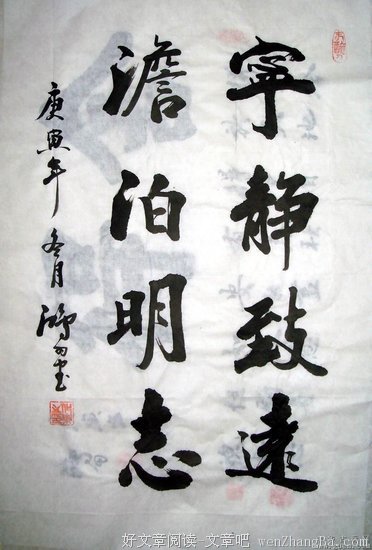 寧静致遠
澹泊明志
庚寅年 冬月
好文章阅读-文章吧 wenZhangBa.com